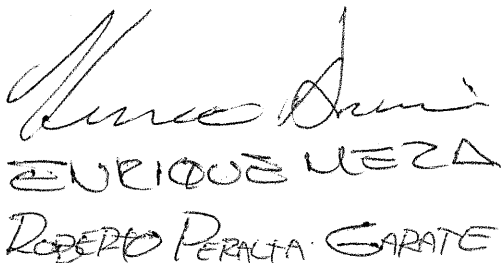 ENRIQUE MEZA
ROBERTO PERALTA GARATE